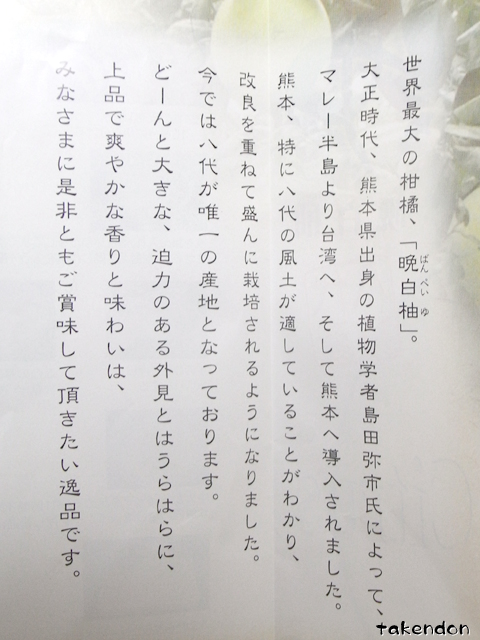 世界最大の柑橘、「晩白柚」。
ばんぺいゆ
大正時代、熊本県出身の植物学者島田弥市氏によって、
マレー半島より台湾へ、そして熊本へ導入されました。
熊本、特に八代の風土が適していることがわかり、
改良を重ねて盛んに栽培されるようになりました。
今では八代が唯一の産地となっております。
どーんと大きな、迫力のある外見とはうらはらに、
上品で爽やかな香りと味わいは、
みなさまに是非ともご賞味して頂きたい逸品です。
takendon